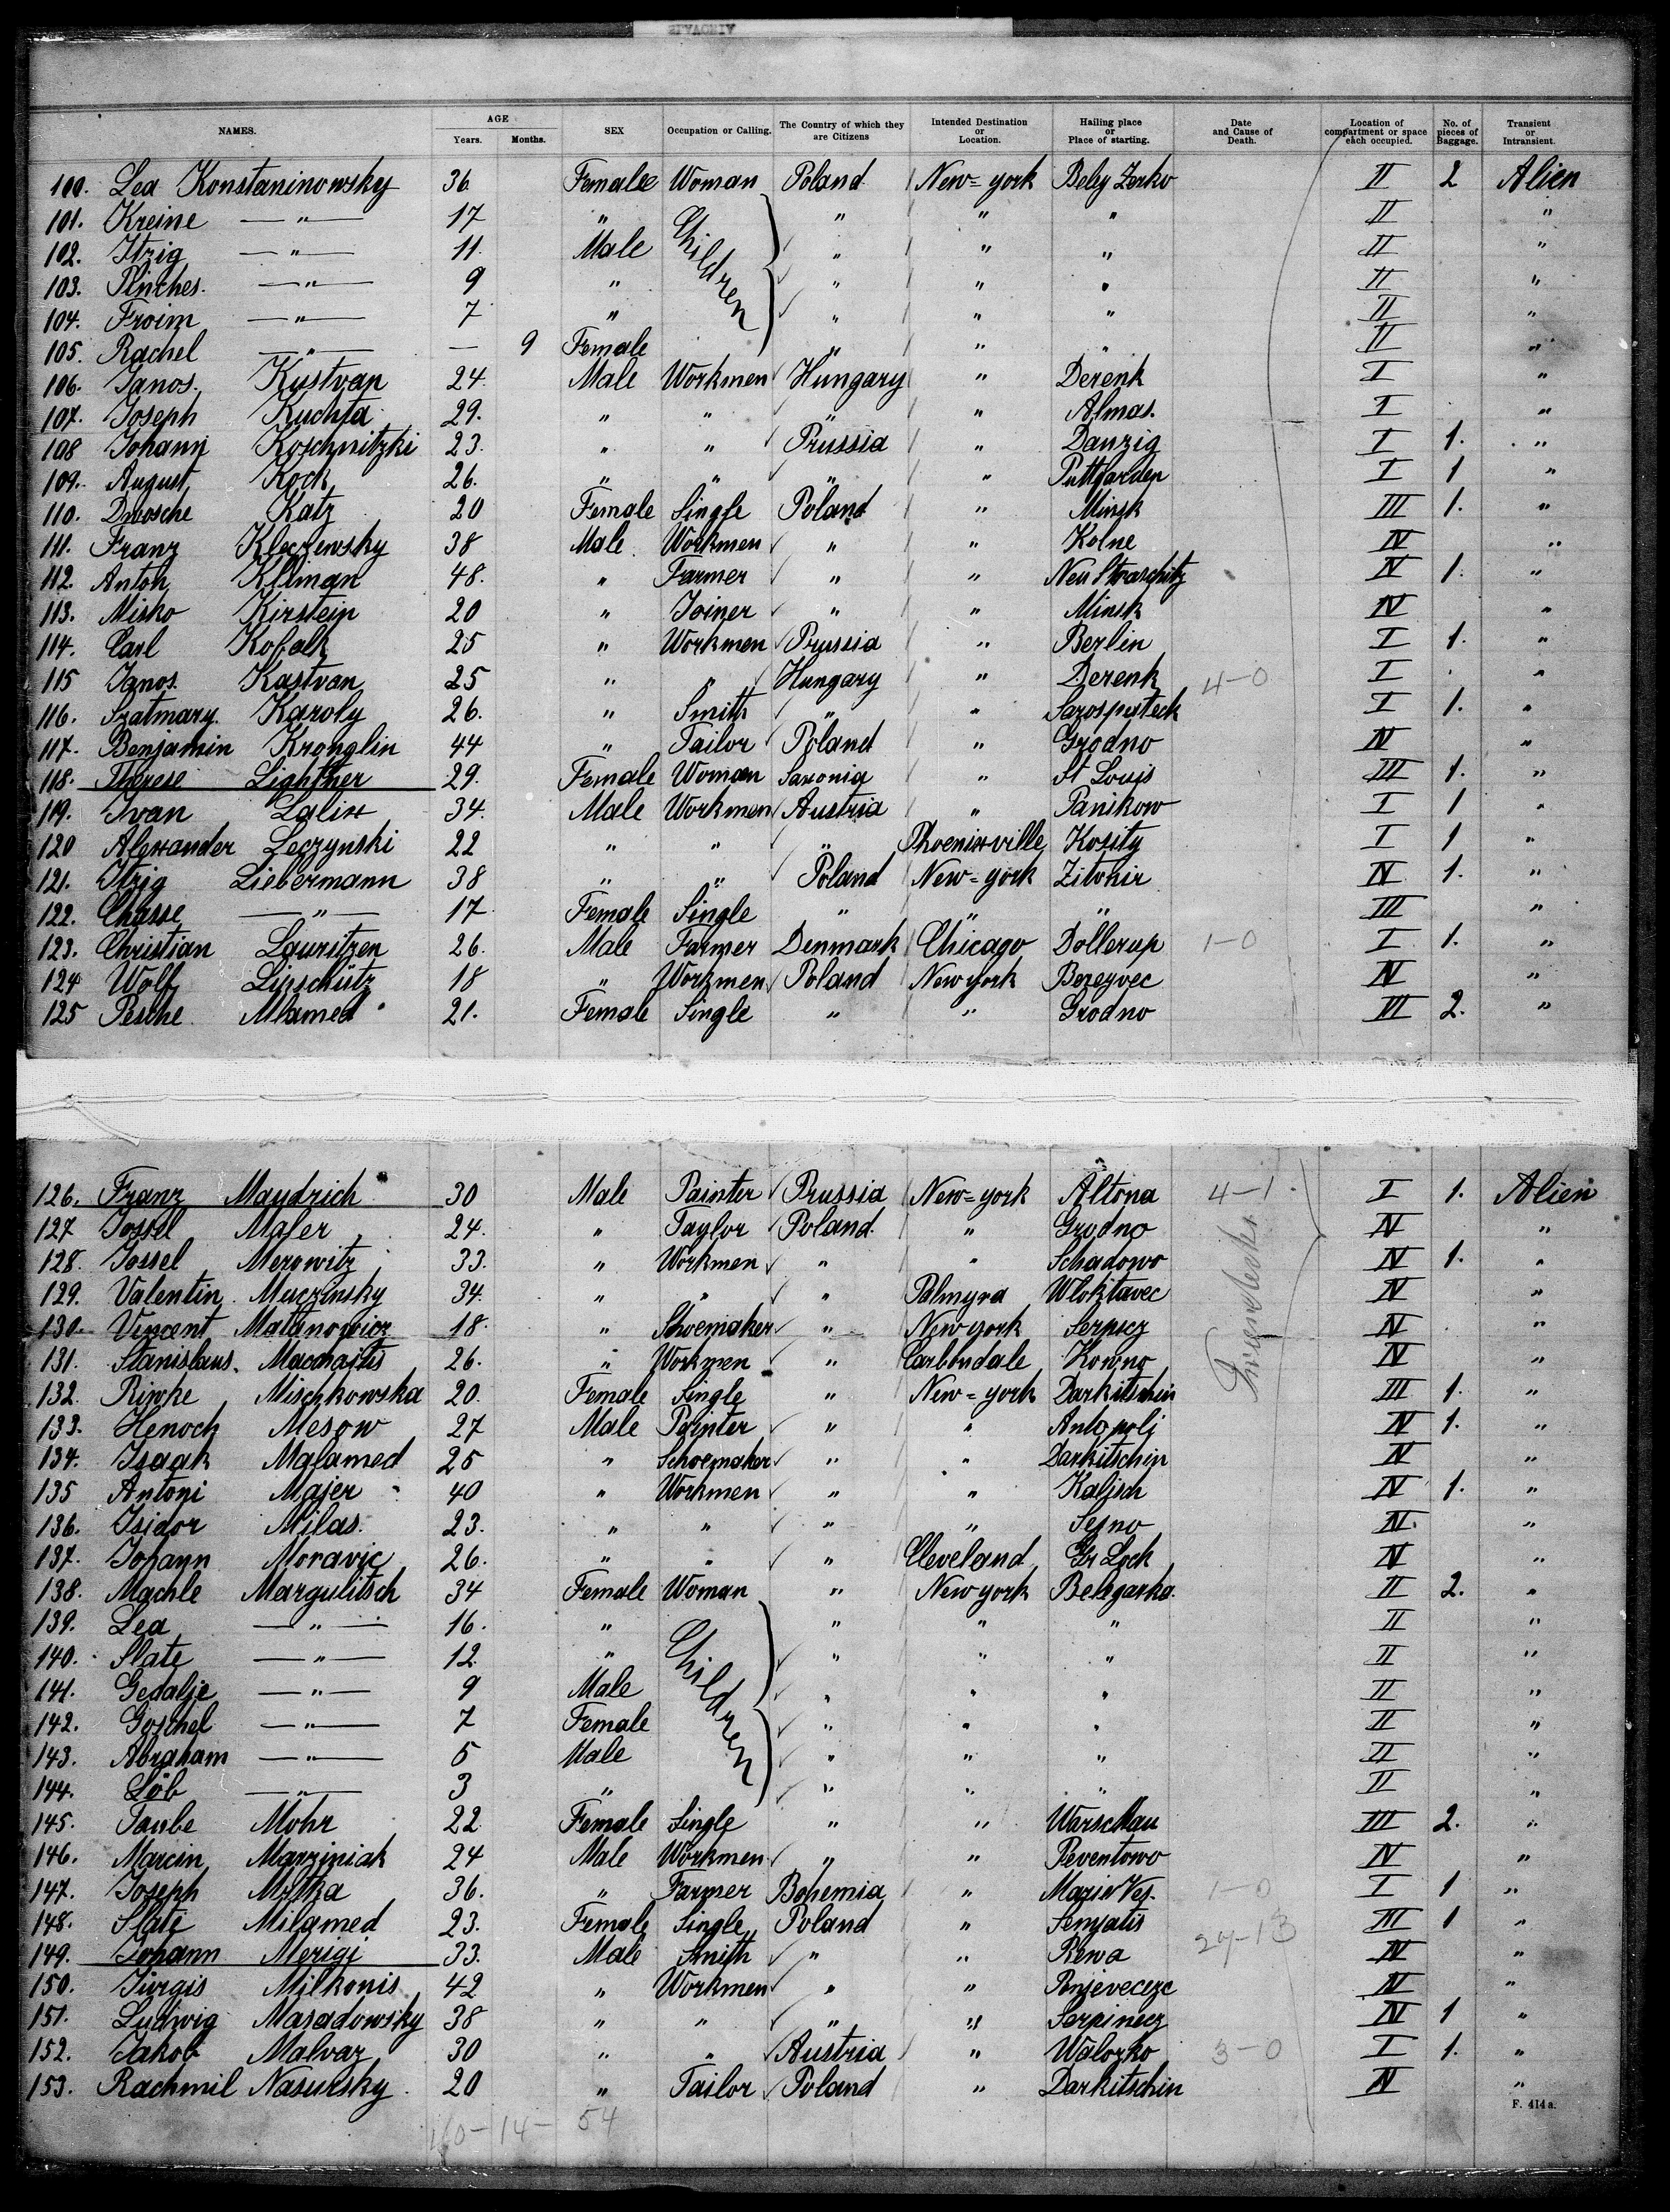 NAMES. AGE Years. Months. SEX Occupation or Calling. The Country of which they are Citizens Intended Destination or Location. Hailing place or Place of starting. Date and Cause of Death. Location of compartment or space each occupied. No. of pieces of Baggage. Transient or Intransient.
100. Lea Konstaninowsky 36 Female Woman Poland New=york Bely Zerko II 2 Alien
101. Kreine —"— 17 " Children " " " II "
102. Itzig —"— 11. Male " " " II "
103. Pinches. —"— 9 " " " " II "
104. Froim —"— 7 " " " " II "
105. Rachel —"— — 9 Female " " " II "
106. Janos. Kustvan 24. Male Workmen Hungary " Derenk I "
107. Joseph Kuchta 29. " " " " Almas. I "
108 Johann Koschnitzki 23. " " Prussia " Danzig I 1. "
109. August Kock 26. " " " " Puttgarden I 1 "
110. Dwosche Katz 20 Female Single Poland " Minsk III 1. "
111. Franz Kleczewsky 38 Male Workmen " " Kolne IV "
112. Anton Kliman 48. " Farmer " " Neu Straschitz IV 1. "
113. Misko Kirstein 20 " Joiner " " Minsk IV "
114. Carl Kobalk 25 " Workmen Prussia " Berlin I 1. "
115 Janos. Kastvan 25 " " Hungary " Derenk 4-0 I "
116. Szatmary. Karoly 26. " Smith " " Sarospasteck I 1. "
117. Benjamin Kronglin 44 " Tailor Poland " Grodno IV "
118. Therese Lightner 29. Female Woman Saxonia " St Louis III 1. "
119. Ivan Lalix 34. Male Workmen Austria " Panikow I 1 "
120 Alexander Leczynski 22 " " " Phoenixville Kosity I 1 "
121. Itzig Liebermann 38 " " Poland New=york Zitomir IV 1. "
122. Chasse —"— 17 Female Single " " " III "
123. Christian Lauritzen 26. Male Farmer Denmark Chicago Dollerup 1-0 I 1. "
124 Wolf Linschütz 18 " Workmen Poland New york Bezeyvec IV "
125 Pesche Mlamed 21. Female Single " " Grodno III 2. "
126. Franz Maydrich 30 Male Painter Prussia New=york Altona 4-1. I 1. Alien
127 Jossel Majer 24. " Taylor Poland. " Grodno IV "
128. Jossel Merowitz 33. " Workmen " " Schadowo IV 1. "
129. Valentin Muczinsky 34. " " " Palmyra Wloktavec IV "
130. Vincent Matanowicz 18. " Shoemaker " New york Serpscz IV "
131. Stanislaus. Macchajtis 26. " Workmen " Carbondale Kowno IV "
132. Riwke Mischkowska 20. Female Single " New=york Darkitschin III 1. "
133. Henoch Mesow 27 Male Painter " " Antopolj IV 1. "
134. Isaak Malamed 25 " Schoemaker " " Darkitschin IV "
135 Antoni Majer 40 " Workmen " " Kalisch IV 1. "
136. Isidor Milas. 23. " " " " Sejno IV "
137. Johann Moravic 26. " " " Cleveland Gr Lock IV "
138. Machle Margulitsch 34 Female Woman " New york Belegarka. II 2. "
139. Lea —"— 16. " Children " " " II "
140. Slate —"— 12. " " " " II "
141. Gedalje —"— 9 Male " " " II "
142. Goschel —"— 7 Female " " " II "
143. Abraham —"— 5 Male " " " II "
144. Löb —"— 3 " " " " II "
145. Taube Mohr 22. Female Single " " Warschau III 2. "
146. Marcin Marziniak 24 Male Workmen " " Peventowo IV "
147. Joseph Mrtka 36. " Farmer Bohemia " Marie Ves. 1-0 I 1 "
148. Slate Milamed 23. Female Single Poland " Senjatis 29-13 III 1 "
149. Johann Merigi 33. Male Smith " " Rewa IV "
150. Jurgis Milkonis 42 " Workmen " " Ponjevecezc IV "
151. Ludwig Masadowsky 38 " " " " Serpinecz IV 1 "
152. Jakob Malvaz 30 " " Austria " Walozko 3-0 I 1. "
153. Rachmil Nasutsky. 20 " Tailor Poland " Darkitschin IV "
F. 414a.
160-14- 54